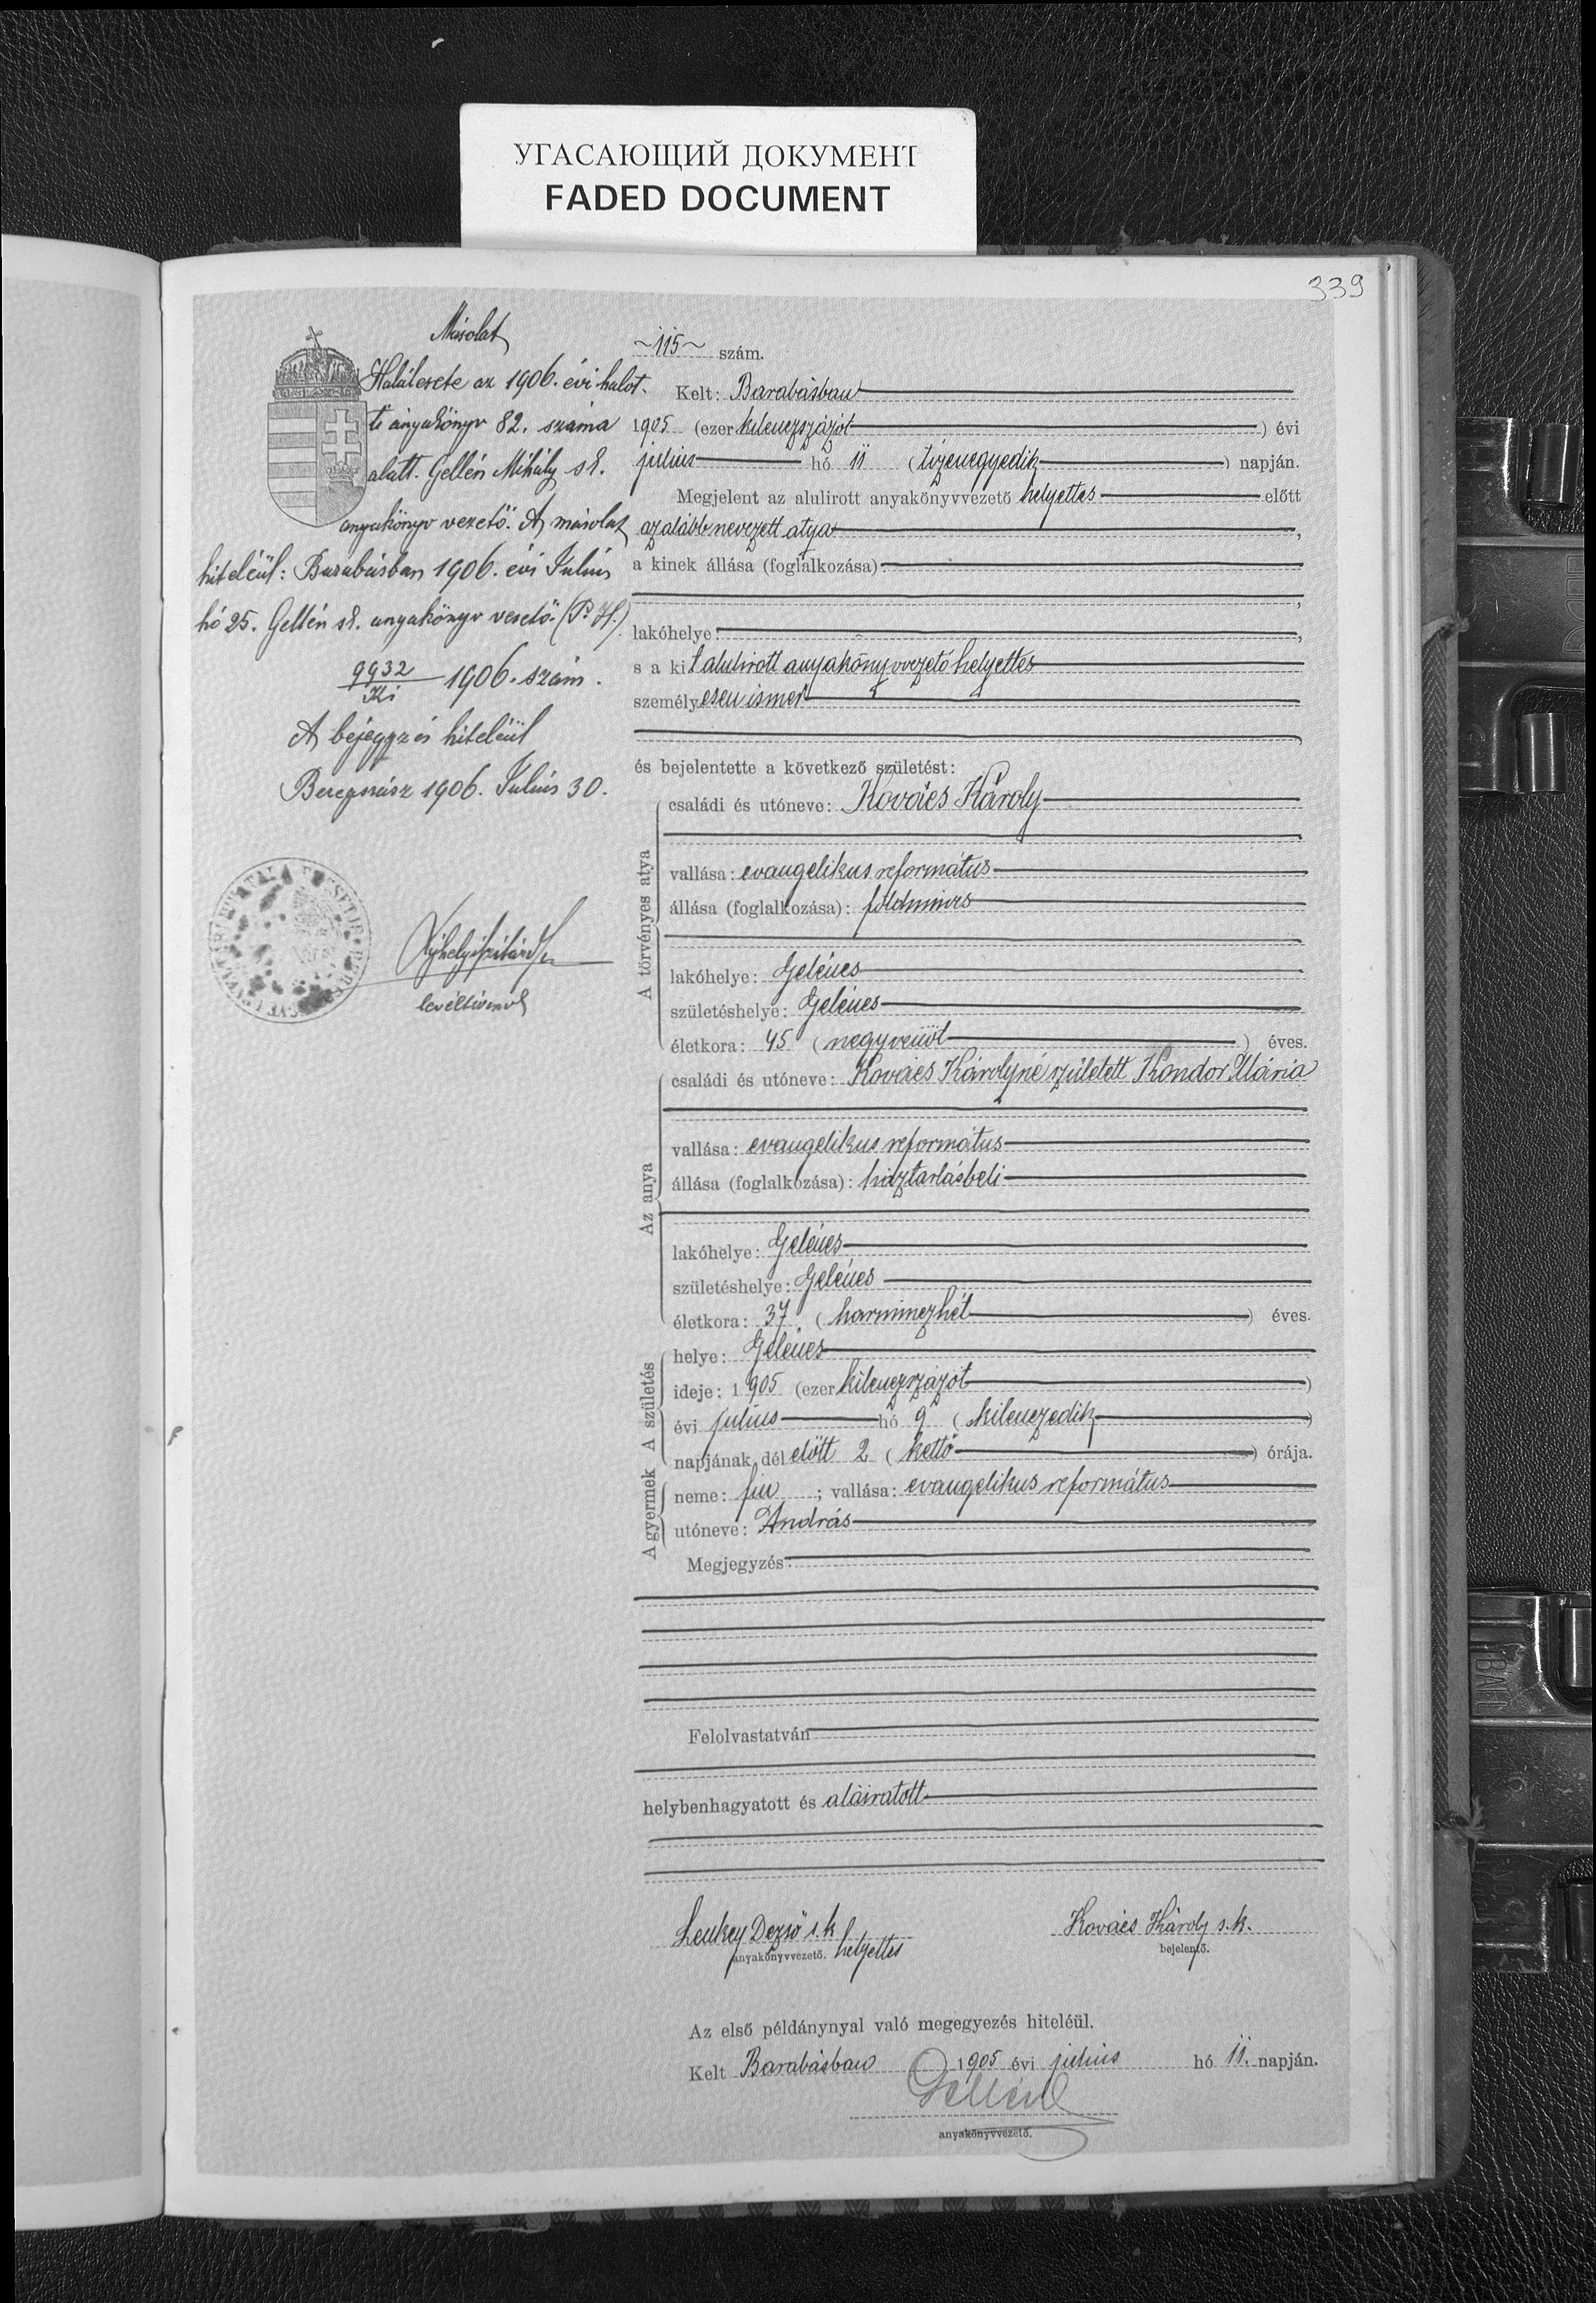 УГАСАЮЩИЙ ДОКУМЕНТ
FADED DOCUMENT
339
Másolat
Halálesete az 1906. évi halot-
ti anyakönyv 82. száma
alatt. Gellén Mihály sk.
anyakönyv vezető. A másolat
hiteléül: Barabásban 1906. évi Július
hó 25. Gellén sk. anyakönyv vezető. (P. H.)
9932/Ki 1906. szám.
A bejegyzés hiteléül
Beregszász 1906. Július 30.
levéltárnok
~115~ szám.
Kelt: Barabásban
1905 (ezer kilenczszázöt) évi
július hó 11 (tizenegyedik) napján.
Megjelent az alulirott anyakönyvvezető helyettes előtt
az alább nevezett atya,
a kinek állása (foglalkozása):
lakóhelye:
s a kit alulirott anyakönyvvezető helyettes
személyesen ismer
és bejelentette a következő születést:
A törvényes atya
családi és utóneve: Kovács Károly
vallása: evangelikus református
állása (foglalkozása): földmives
lakóhelye: Gelénes
születéshelye: Gelénes
életkora: 45 (negyvenöt) éves.
Az anya
családi és utóneve: Kovács Károlyné született Kondor Mária
vallása: evangelikus református
állása (foglalkozása): háztartásbeli
lakóhelye: Gelénes
születéshelye: Gelénes
életkora: 37 (harminczhét) éves.
A születés
helye: Gelénes
ideje: 1905 (ezer kilenczszázöt)
évi július hó 9 (kilenczedik)
napjának dél előtt 2 (kettő) órája.
A gyermek
neme: fiu; vallása: evangelikus református
utóneve: András
Megjegyzés:
Felolvastatván
helybenhagyatott és aláiratott
Lenkey Dezső s.k. Kovács Károly s.k.
anyakönyvvezető. helyettes bejelentő.
Az első példánynyal való megegyezés hiteléül.
Kelt Barabásban 1905 évi július hó 11. napján.
Gellén
anyakönyvvezető.